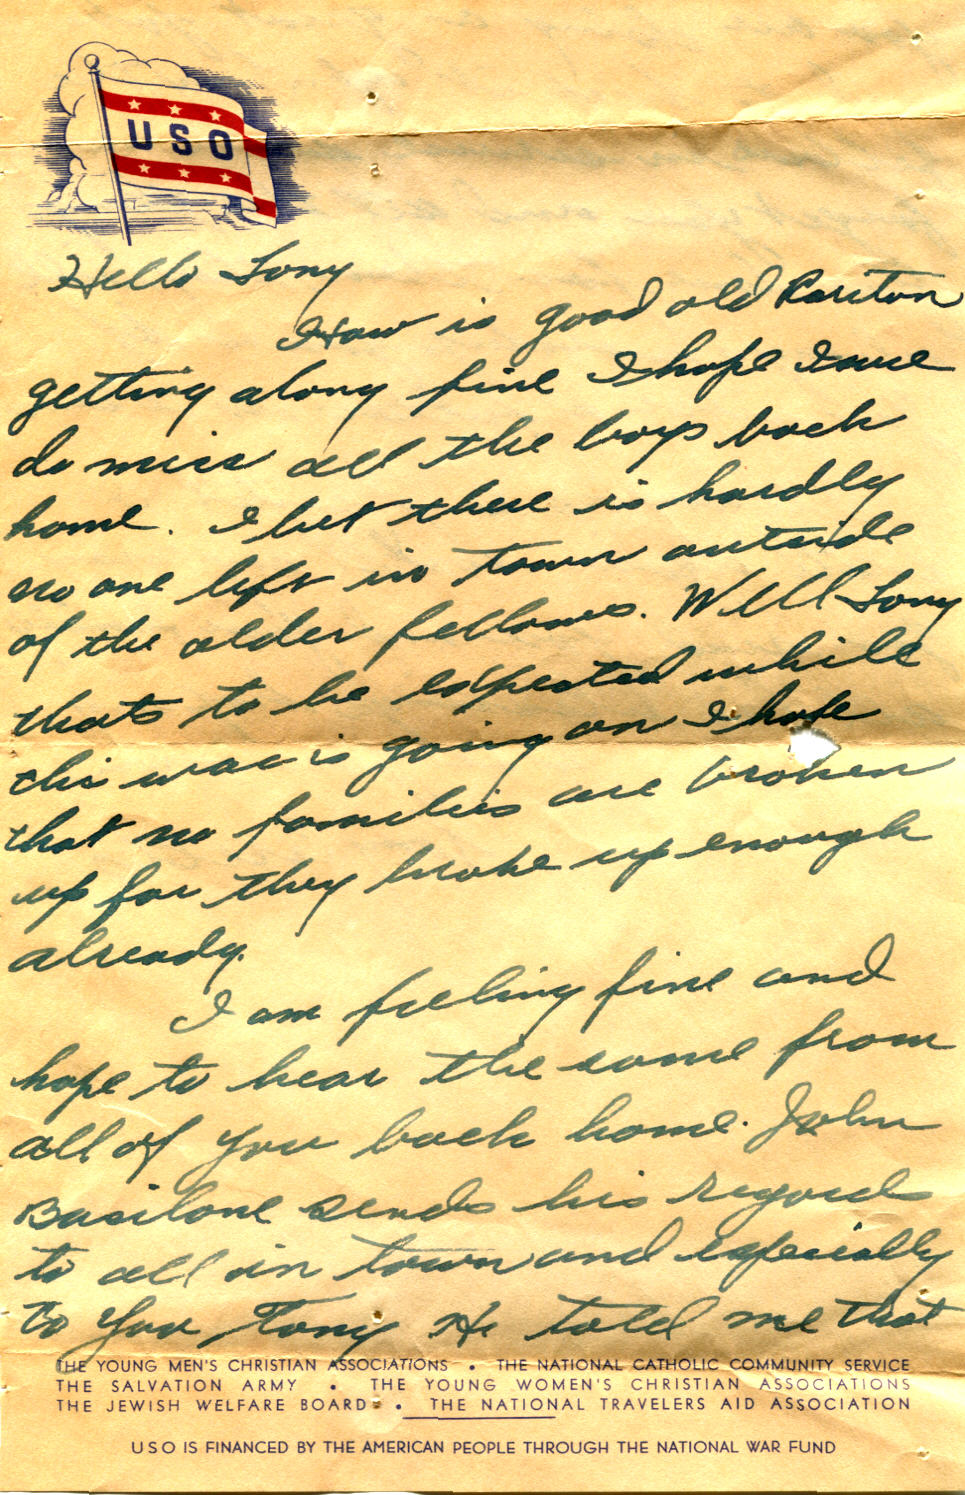 USO
Hello Tony
How is good old Raritan
getting along fine I hope I sure
do miss all the boys back
home. I bet there is hardly
no one left in town outside
of the older fellows. Well Tony
thats to be expected while
this war is going on I hope
that no families are broken
up for they broke up enough
already.
I am feeling fine and
hope to hear the same from
all of you back home. John
Basilone sends his regards
to all in town and especially
to you Tony He told me that
THE YOUNG MEN'S CHRISTIAN ASSOCIATIONS • THE NATIONAL CATHOLIC COMMUNITY SERVICE
THE SALVATION ARMY • THE YOUNG WOMEN'S CHRISTIAN ASSOCIATIONS
THE JEWISH WELFARE BOARD • THE NATIONAL TRAVELERS AID ASSOCIATION
USO IS FINANCED BY THE AMERICAN PEOPLE THROUGH THE NATIONAL WAR FUND